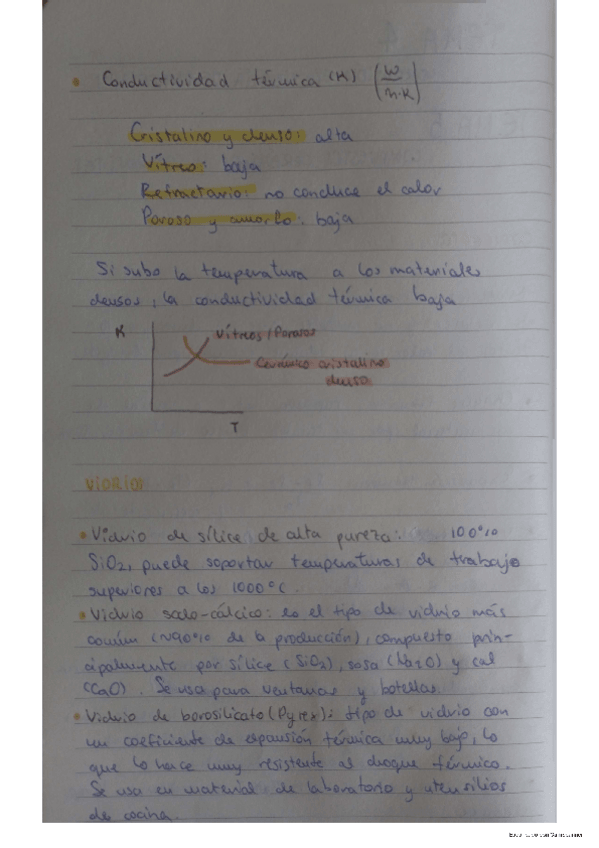 • Conductividad térmica (K) (W/m·K)
Cristalino y denso: alta
Vítreo: baja
Refractario: no conduce el calor
Poroso y amorfo: baja
Si subo la temperatura a los materiales
densos, la conductividad térmica baja
K
Vítreos/Porosos
Cerámico cristalino
denso
T
VIDRIOS
• Vidrio de sílice de alta pureza: 100%
SiO2, puede soportar temperaturas de trabajo
superiores a los 1000°C.
• Vidrio sodo-cálcico: es el tipo de vidrio más
común (~90% de la producción), compuesto prin-
cipalmente por sílice (SiO2), sosa (Na2O) y cal
(CaO). Se usa para ventanas y botellas.
• Vidrio de borosilicato (Pyrex): tipo de vidrio con
un coeficiente de expansión térmica muy bajo, lo
que lo hace muy resistente al choque térmico.
Se usa en material de laboratorio y utensilios
de cocina.